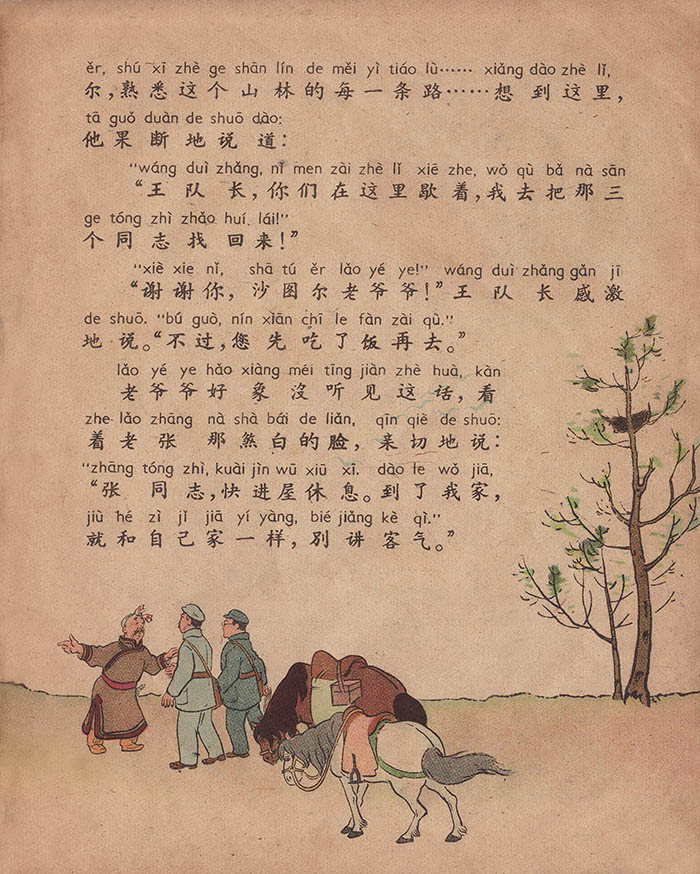 ěr, shú xī zhè ge shān lín de měi yì tiáo lù…… xiǎng dào zhè lǐ,
尔,熟悉这个山林的每一条路……想到这里,
tā guǒ duàn de shuō dào:
他果断地说道:
"wáng duì zhǎng, nǐ men zài zhè lǐ xiē zhe, wǒ qù bǎ nà sān
“王队长,你们在这里歇着,我去把那三
ge tóng zhì zhǎo huí lái!"
个同志找回来!”
"xiè xie nǐ, shā tú ěr lǎo yé ye!" wáng duì zhǎng gǎn jī
“谢谢你,沙图尔老爷爷!”王队长感激
de shuō. "bú guò, nín xiān chī le fàn zài qù."
地说。“不过,您先吃了饭再去。”
lǎo yé ye hǎo xiàng méi tīng jiàn zhè huà, kàn
老爷爷好象沒听见这话,看
zhe lǎo zhāng nà shà bái de liǎn, qīn qiè de shuō:
着老张那煞白的脸,亲切地说:
"zhāng tóng zhì, kuài jìn wū xiū xī. dào le wǒ jiā,
“张同志,快进屋休息。到了我家,
jiù hé zì jǐ jiā yí yàng, bié jiǎng kè qì."
就和自己家一样,別讲客气。”